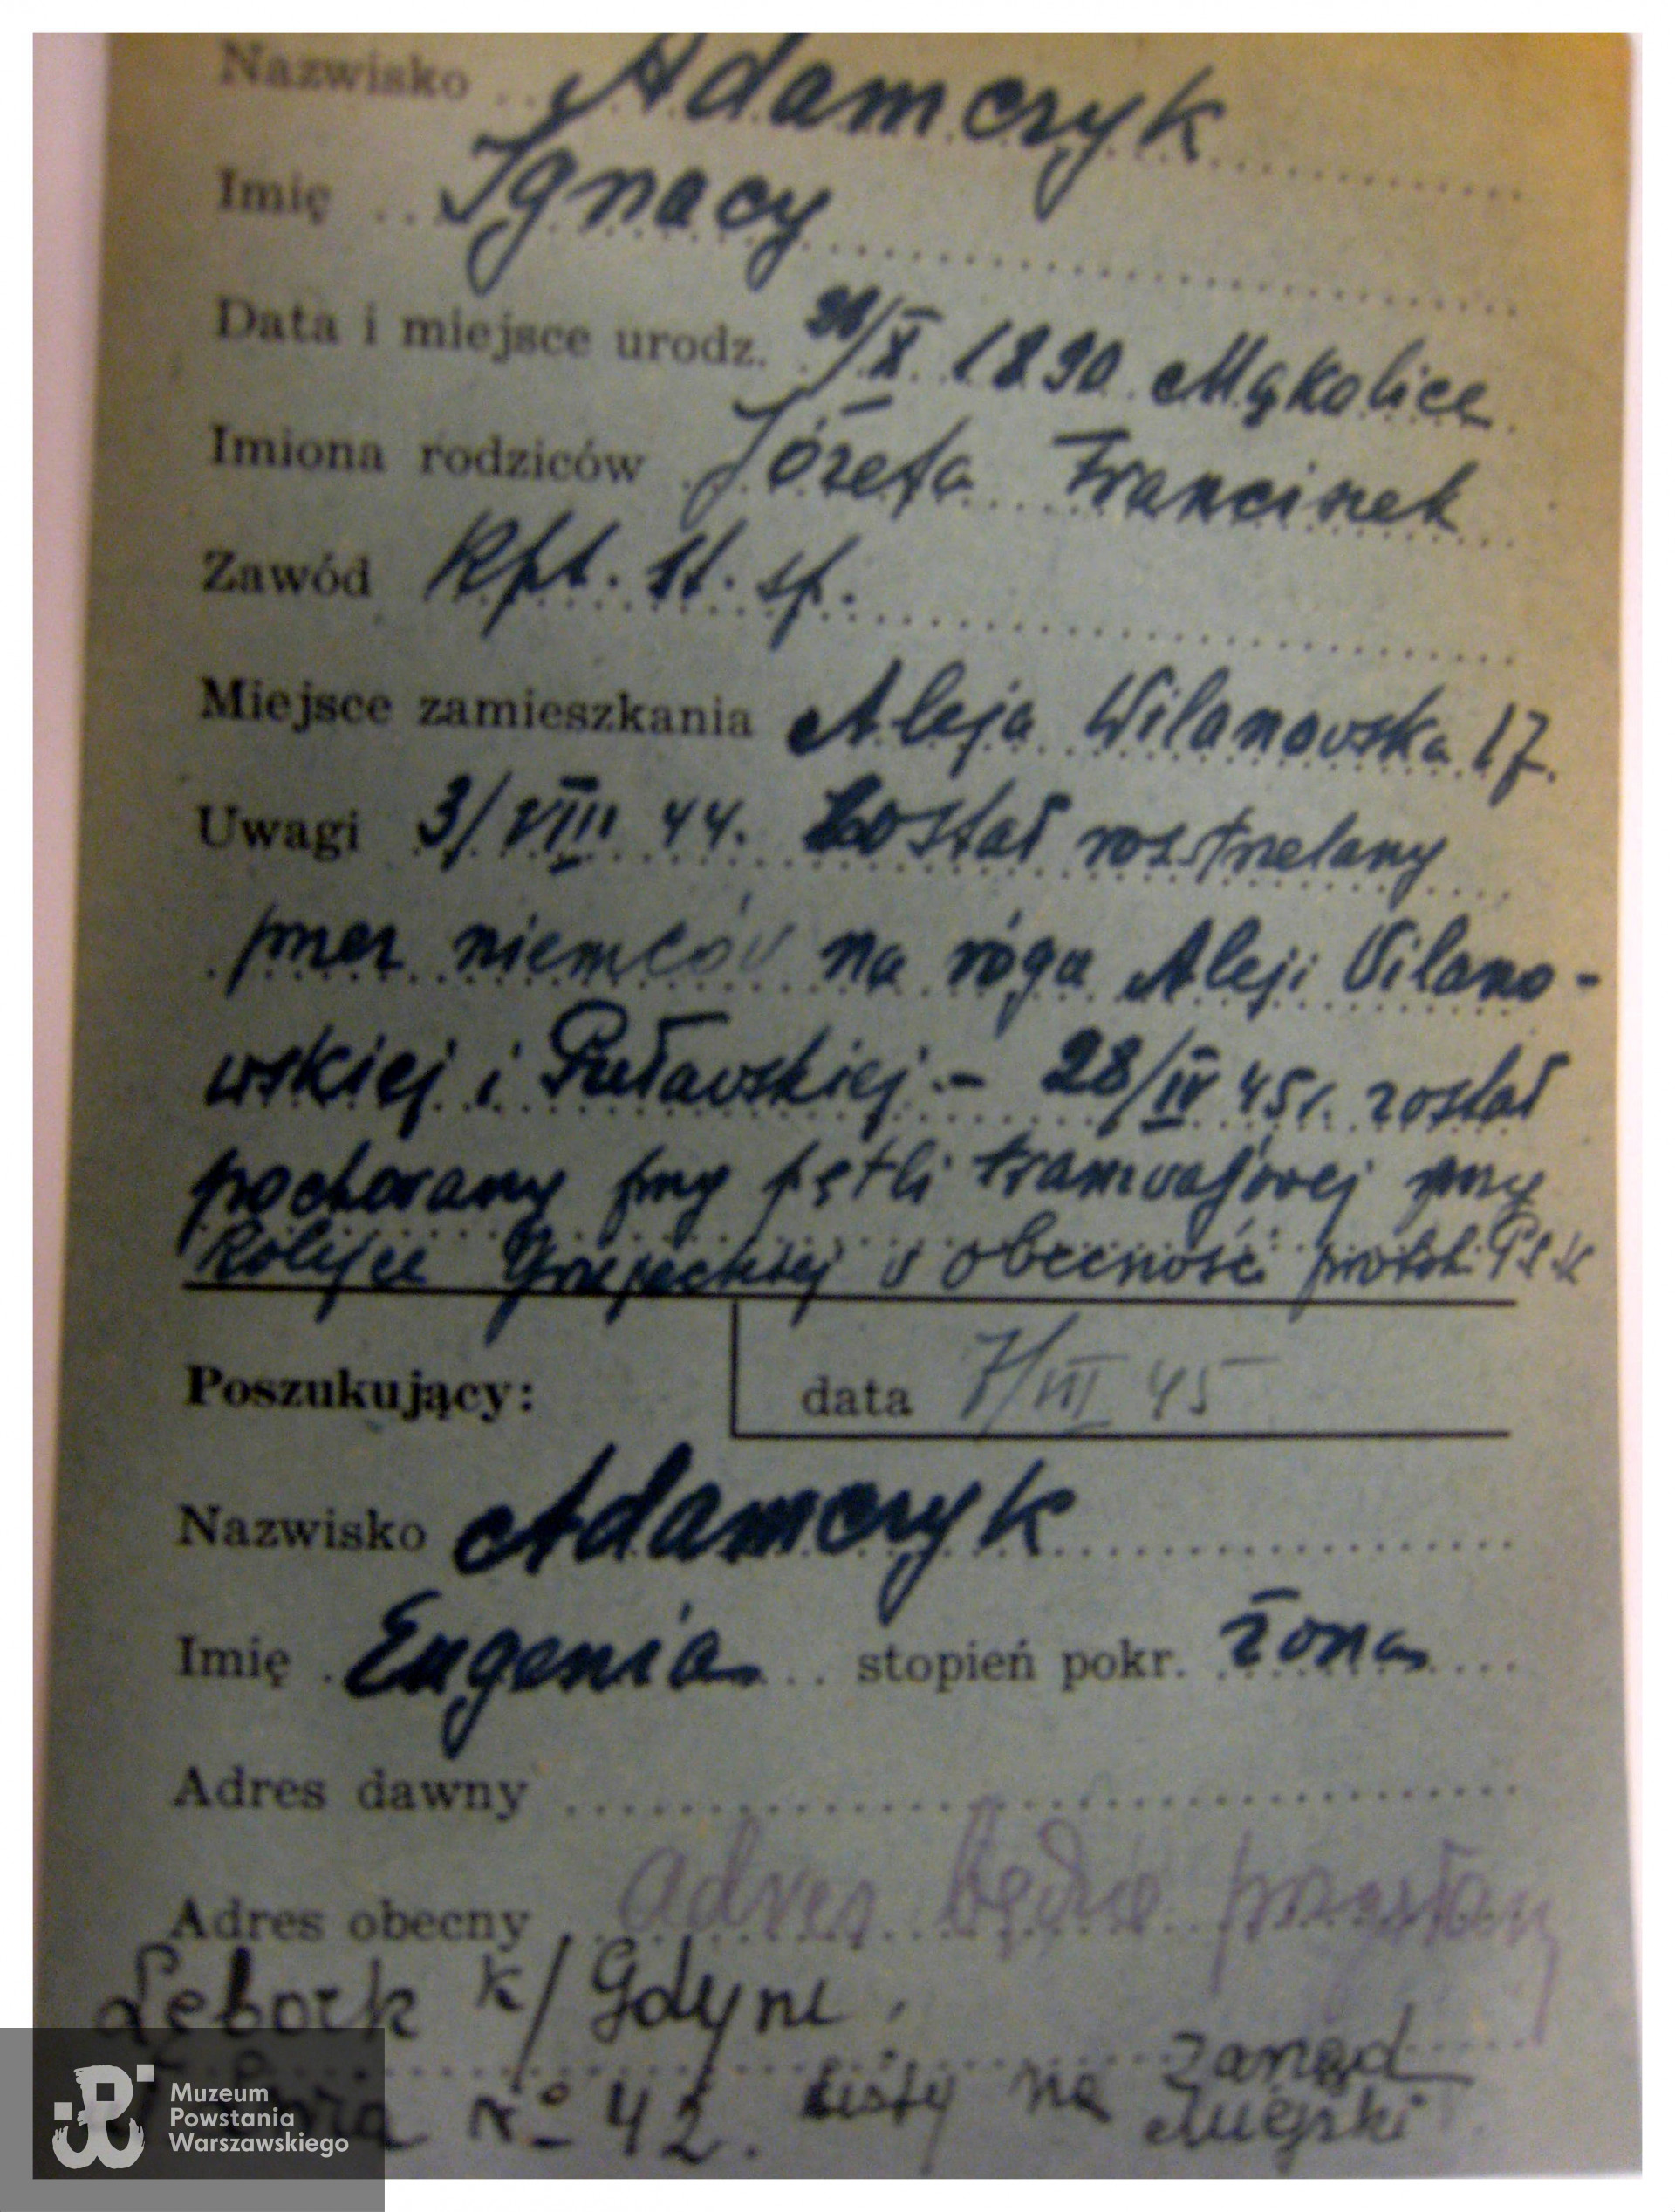 Nazwisko Adamczyk
Imię Ignacy
Data i miejsce urodz. /X 1890 Mąkolice
Imiona rodziców Józefa Franciszek
Zawód Kpt. st. sp.
Miejsce zamieszkania Aleja Wilanowska 17.
Uwagi 3/VIII 44. Został rozstrzelany
przez niemców na rógu Aleji Wilano-
wskiej i Puławskiej - 28/IV 45r. został
pochowany przy pętli tramwajowej przy
Kolejce Grójeckiej w obecności protok. PCK
Poszukujący:
data 7/VIII 45
Nazwisko Adamczyk
Imię Eugenia stopień pokr. żona
Adres dawny
Adres obecny adres będzie przysłany
Lębork k/Gdyni
No 42. Listy na Zarząd
Miejski
Muzeum
Powstania
Warszawskiego